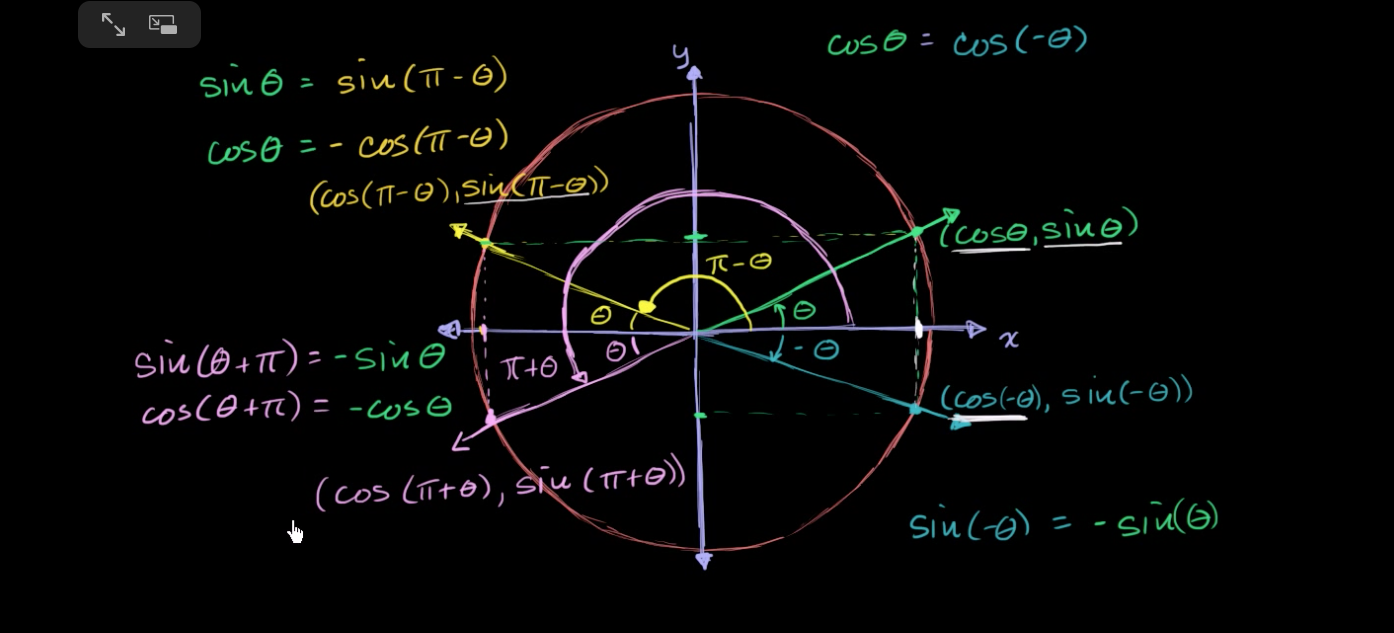 cosθ = cos(-θ)
y
sinθ = sin(π-θ)
cosθ = - cos(π-θ)
(cos(π-θ), sin(π-θ))
(cosθ, sinθ)
π-θ
θ
θ
x
-θ
θ
π+θ
sin(θ+π) = -sinθ
cos(θ+π) = -cosθ
(cos(-θ), sin(-θ))
(cos(π+θ), sin(π+θ))
sin(-θ) = -sin(θ)